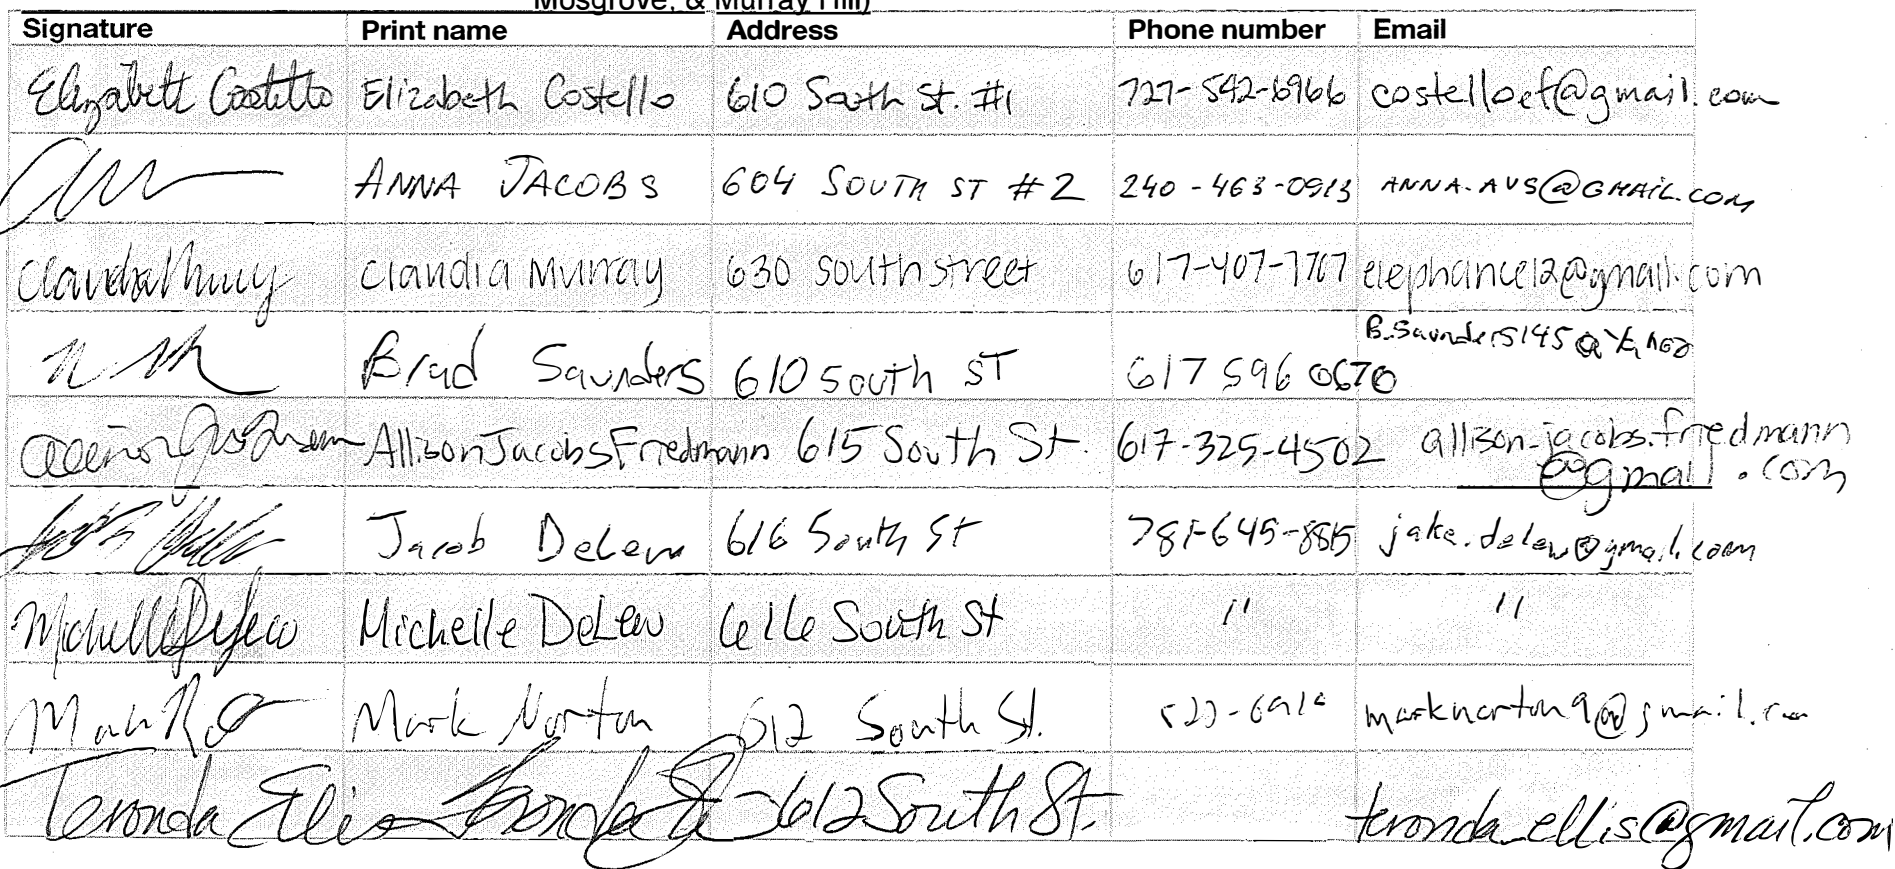 Mosgrove, & Murray Hill)
Signature Print name Address Phone number Email
Elizabeth Costello Elizabeth Costello 610 South St. #1 727-542-6966 costelloef@gmail.com
ANNA JACOBS 604 SOUTH ST #2 240-463-0913 ANNA.AVS@GMAIL.COM
Claudia Murray Claudia Murray 630 South street 617-407-7767 elephance12@gmail.com
B.Saunders145@Yahoo
Brad Saunders 610 South ST 617 596 0670
Allison Jacobs Friedmann 615 South St. 617-325-4502 allison.jacobs.friedmann
@gmail.com
Jacob DeLew 616 South St 781-645-8815 jake.delew@gmail.com
Michelle DeLew Michelle DeLew 616 South St " "
Mark Norton 612 South St. marknorton9@gmail.com
Teronda Ellis Teronda 612 South St. teronda_ellis@gmail.com